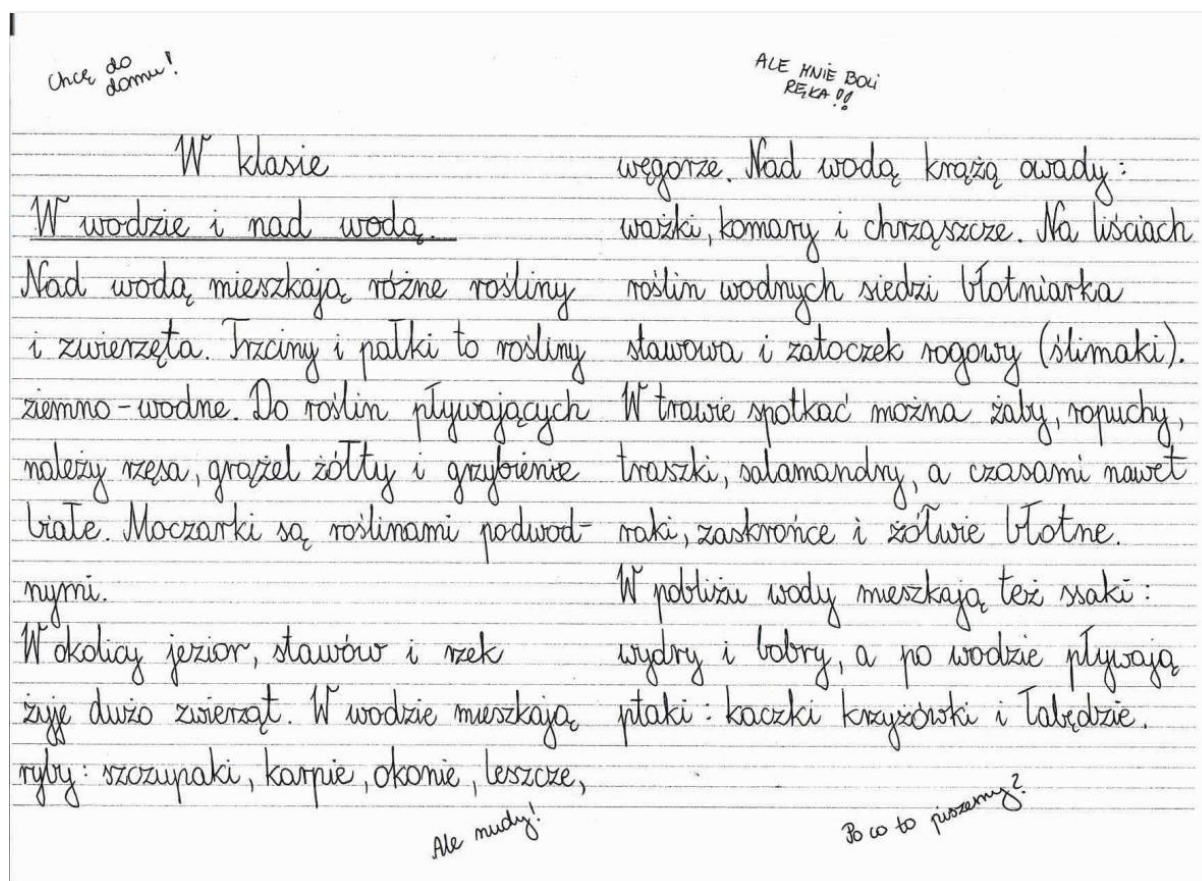 Chcę do
domu!
ALE MNIE BOLI
RĘKA!!
W klasie
W wodzie i nad wodą.
Nad wodą mieszkają różne rośliny
i zwierzęta. Trzciny i pałki to rośliny
ziemno-wodne. Do roślin pływających
należy rzęsa, grążel żółty i grzybienie
białe. Moczarki są roślinami podwod-
nymi.
W okolicy jezior, stawów i rzek
żyję dużo zwierząt. W wodzie mieszkają
ryby: szczupaki, karpie, okonie, leszcze,
węgorze. Nad wodą krążą owady:
ważki, komary i chrząszcze. Na liściach
roślin wodnych siedzi błotniarka
stawowa i zatoczek rogowy (ślimaki).
W trawie spotkać można żaby, ropuchy,
traszki, salamandry, a czasami nawet
raki, zaskrońce i żółwie błotne.
W pobliżu wody mieszkają też ssaki:
wydry i bobry, a po wodzie pływają
ptaki: kaczki krzyżówki i łabędzie.
Ale nudy!
Po co to piszemy?